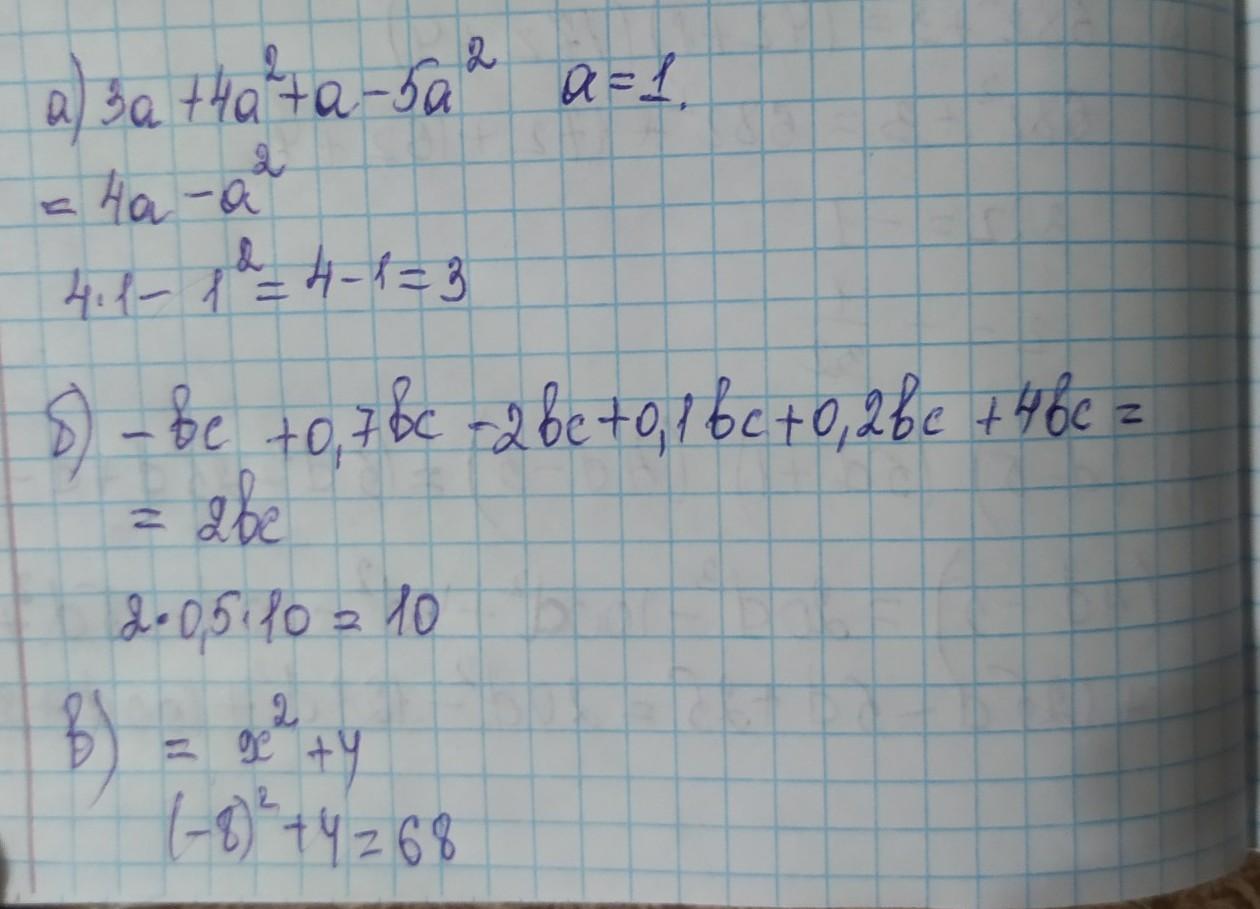 а) 3a + 4a² + a - 5a² a = 1.
= 4a - a²
4·1 - 1² = 4 - 1 = 3
б) - bc + 0,7bc - 2bc + 0,1bc + 0,2bc + 4bc =
= 2bc
2·0,5·10 = 10
в) = x² + 4
(-8)² + 4 = 68